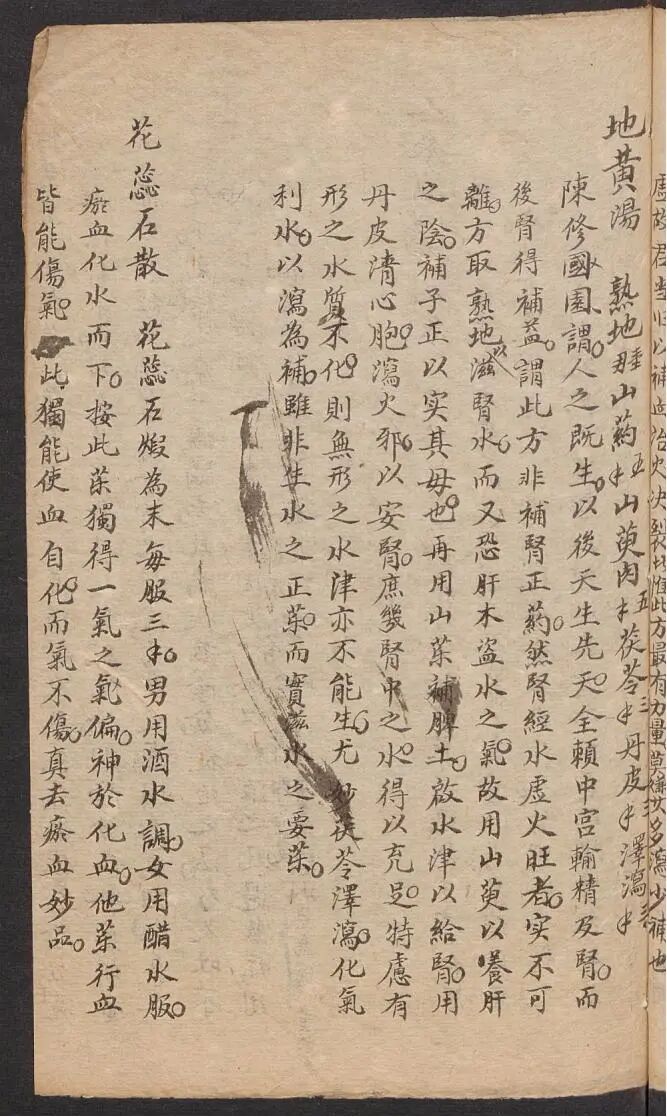 虛故君当归以補血治火決裂惟此方最有力量莫嫌其多瀉少補也
地黄湯　熟地山葯五山萸肉五茯苓三丹皮澤瀉
陳修園謂。人之既生。以後天生先天。全頼中宮輸精及腎。而
後腎得補益。謂此方非補腎正葯。然腎經水虚火旺者。实不可
離。方取熟地以滋腎水。而又恐肝木盜水之氣。故用山萸以養肝
之陰。補子正以实其母也。再用山葯補脾土。啟水津以給腎。用
丹皮清心胞。瀉火邪。以安腎。庶幾腎中之水。得以充足。特慮有
形之水質不化。則無形之水津亦不能生。尤妙茯苓澤瀉。化氣
利水。以瀉為補。雖非生水之正葯。而實滋水之要葯。
花蕊石散　花蕊石煅為末每服三。男用酒水調。女用醋水服。
瘀血化水而下。按此葯獨得一氣之氣偏。神於化血。他葯行血
皆能傷氣。此獨能使血自化。而氣不傷。真去瘀血妙品。